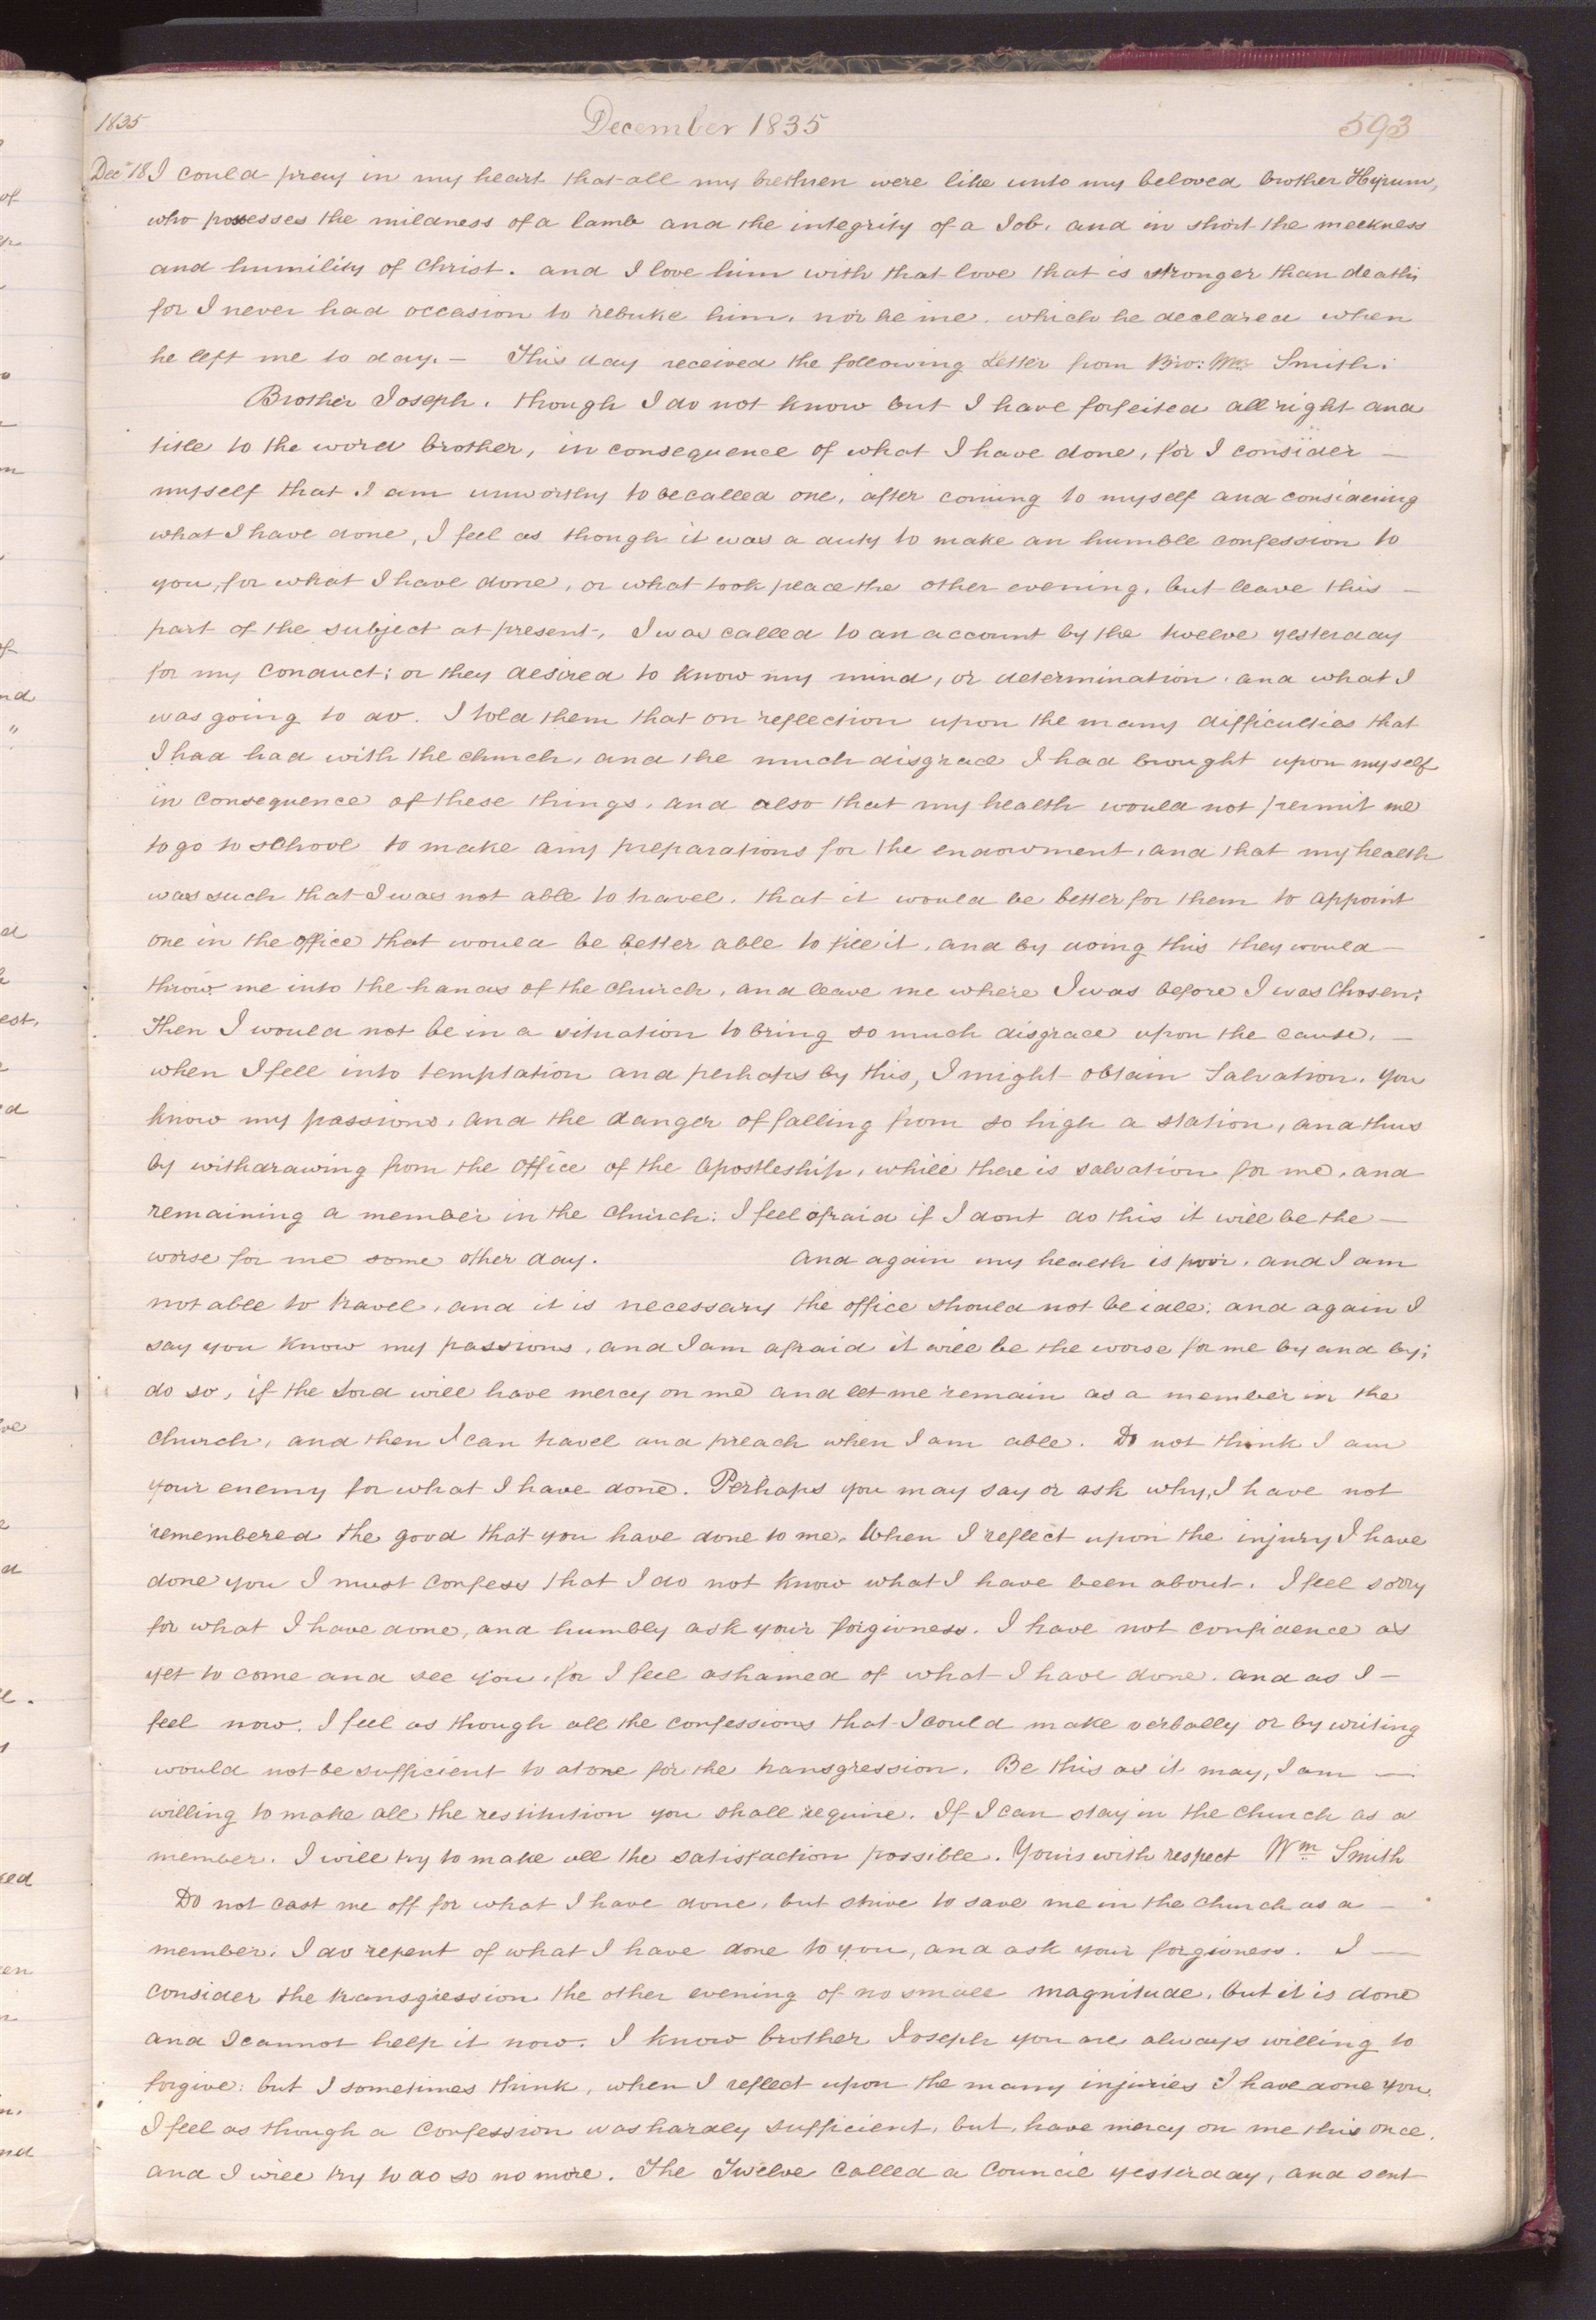 1835 December 1835 593
Dec 18 I could pray in my heart that all my brethren were like unto my beloved brother Hyrum,
who possesses the mildness of a lamb and the integrity of a Job, and in short the meekness
and humility of Christ. and I love him with that love that is stronger than death;
for I never had occasion to rebuke him, nor he me. which he declared when
he left me to day. — This day received the following Letter from Bro: Wm Smith.
Brother Joseph. though I do not know but I have forfeited all right and
title to the word brother, in consequence of what I have done, for I consider —
myself that I am unworthy to be called one, after coming to myself and considering
what I have done, I feel as though it was a duty to make an humble confession to
you, for what I have done, or what took place the other evening, but leave this —
part of the subject at present, I was called to an account by the twelve yesterday
for my conduct; or they desired to know my mind, or determination, and what I
was going to do. I told them that on reflection upon the many difficulties that
I had had with the church, and the much disgrace I had brought upon myself
in consequence of these things, and also that my health would not permit me
to go to school to make any preparations for the endowment, and that my health
was such that I was not able to travel, that it would be better for them to appoint
one in the office that would be better able to fill it, and by doing this they would —
throw me into the hands of the church, and leave me where I was before I was chosen;
Then I would not be in a situation to bring so much disgrace upon the cause, —
when I fell into temptation and perhaps by this, I might obtain Salvation. you
know my passions, and the danger of falling from so high a station, and thus
by withdrawing from the office of the apostleship, while there is salvation for me, and
remaining a member in the church; I feel afraid if I dont do this it will be the —
worse for me some other day. And again my health is poor, and I am
not able to travel, and it is necessary the office should not be idle; and again I
say you know my passions, and I am afraid it will be the worse for me by and by;
do so, if the Lord will have mercy on me and let me remain as a member in the
church, and then I can travel and preach when I am able. Do not think I am
your enemy for what I have done. Perhaps you may say or ask why, I have not
remembered the good that you have done to me. When I reflect upon the injury I have
done you I must confess that I do not know what I have been about. I feel sorry
for what I have done, and humbly ask your forgivness. I have not confidence as
yet to come and see you, for I feel ashamed of what I have done. and as I —
feel now. I feel as though all the confessions that I could make verbally or by writing
would not be sufficient to atone for the transgression. Be this as it may, I am —
willing to make all the restitution you shall require. If I can stay in the church as a
member. I will try to make all the satisfaction possible. Yours with respect Wm Smith
Do not cast me off for what I have done, but strive to save me in the church as a —
member. I do repent of what I have done to you, and ask your forgivness. I —
consider the transgression the other evening of no small magnitude, but it is done
and I cannot help it now. I know brother Joseph you are always willing to
forgive: but I sometimes think, when I reflect upon the many injuries I have done you,
I feel as though a confession was hardly sufficient, but, have mercy on me this once,
and I will try to do so no more. The Twelve called a Council yesterday, and sent